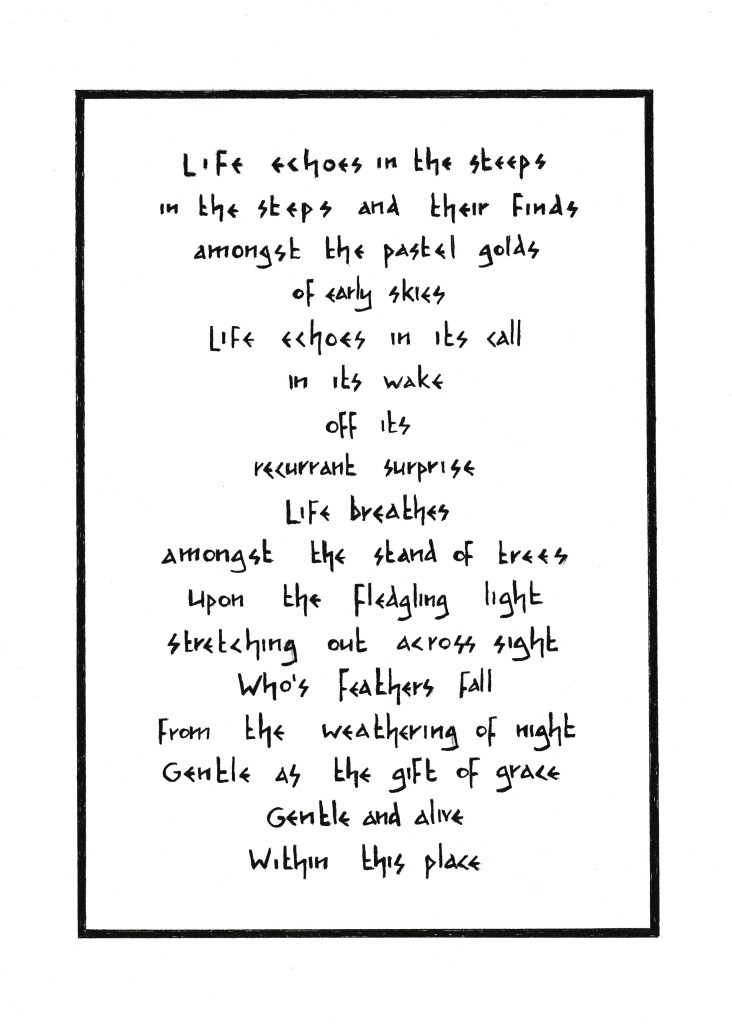 Life echoes in the steeps
in the steps and their finds
amongst the pastel golds
of early skies
Life echoes in its call
in its wake
off its
recurrant surprise
Life breathes
amongst the stand of trees
upon the fledgling light
stretching out across sight
Who's feathers fall
From the weathering of night
Gentle as the gift of grace
Gentle and alive
Within this place